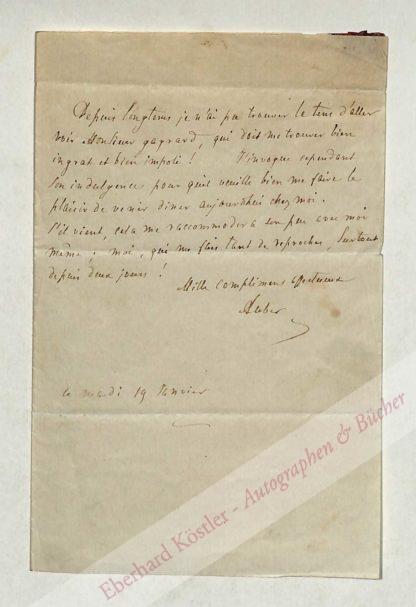 Depuis longtems je n'ai pu trouver le tems d'aller
voir Monsieur gayrard, qui doit me trouver bien
ingrat et bien impoli ! J'invoque cependant
son indulgence pour qu'il veuille bien me faire le
plaisir de venir diner aujourdhui chez moi.
S'il vient, cela me raccommodera un peu avec moi
même ; moi, qui me fais tant de reproches, surtout
depuis deux jours !
Mille complimens affectueux
Auber
ce mardi 19 Janvier
Eberhard Köstler - Autographen & Bücher